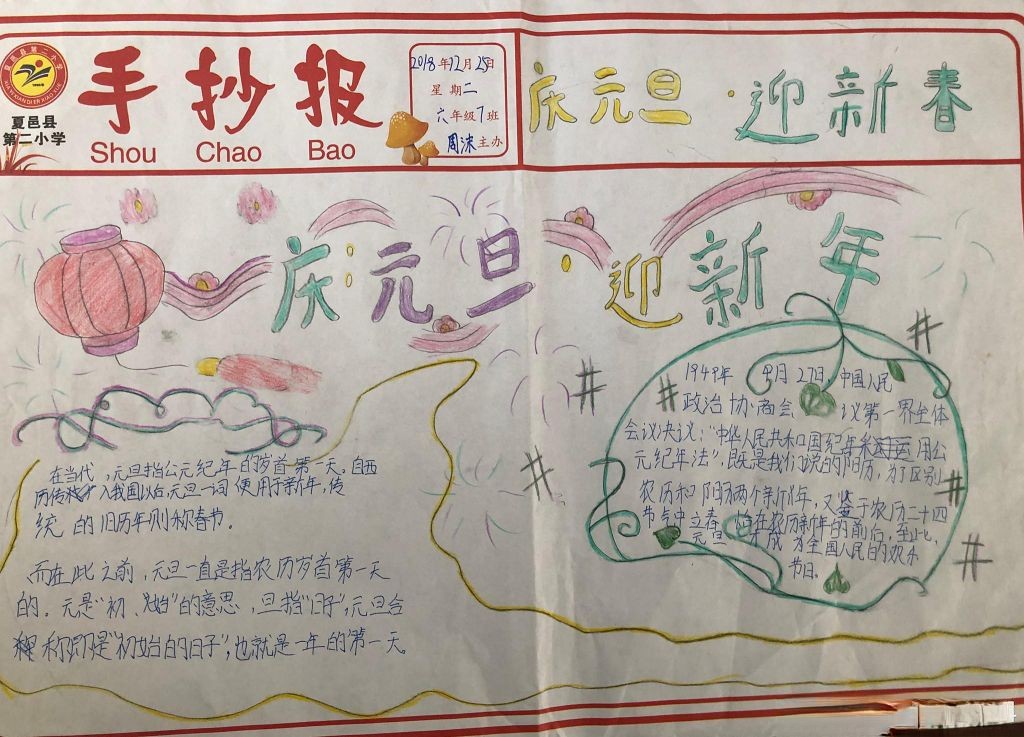 夏邑县第二小学
XIA YI XIAN DI ER XIAO XUE
夏邑县
第二小学
手抄报
Shou Chao Bao
2018年12月25日
星期二
六年级7班
周沫主办
庆元旦·迎新春
庆:元旦·迎新年
在当代,元旦指公元纪年的岁首第一天。自西
历传入我国以后,元旦一词便用于新年,传
统的旧历年则称春节。
而在此之前,元旦一直是指农历岁首第一天
的。元是"初、始"的意思,旦指"日子",元旦合
称即是"初始的日子",也就是一年的"第一天。
1949年9月27日,中国人民
政治协商会议第一界全体
会议决议:"中华人民共和国纪年采用公
元纪年法",既是我们说的阳历,为了区别
农历和阳历两个新年,又鉴于农历二十四
节气中立春恰在农历新年的前后,至此,
元旦才成为全国人民的欢乐
节日。